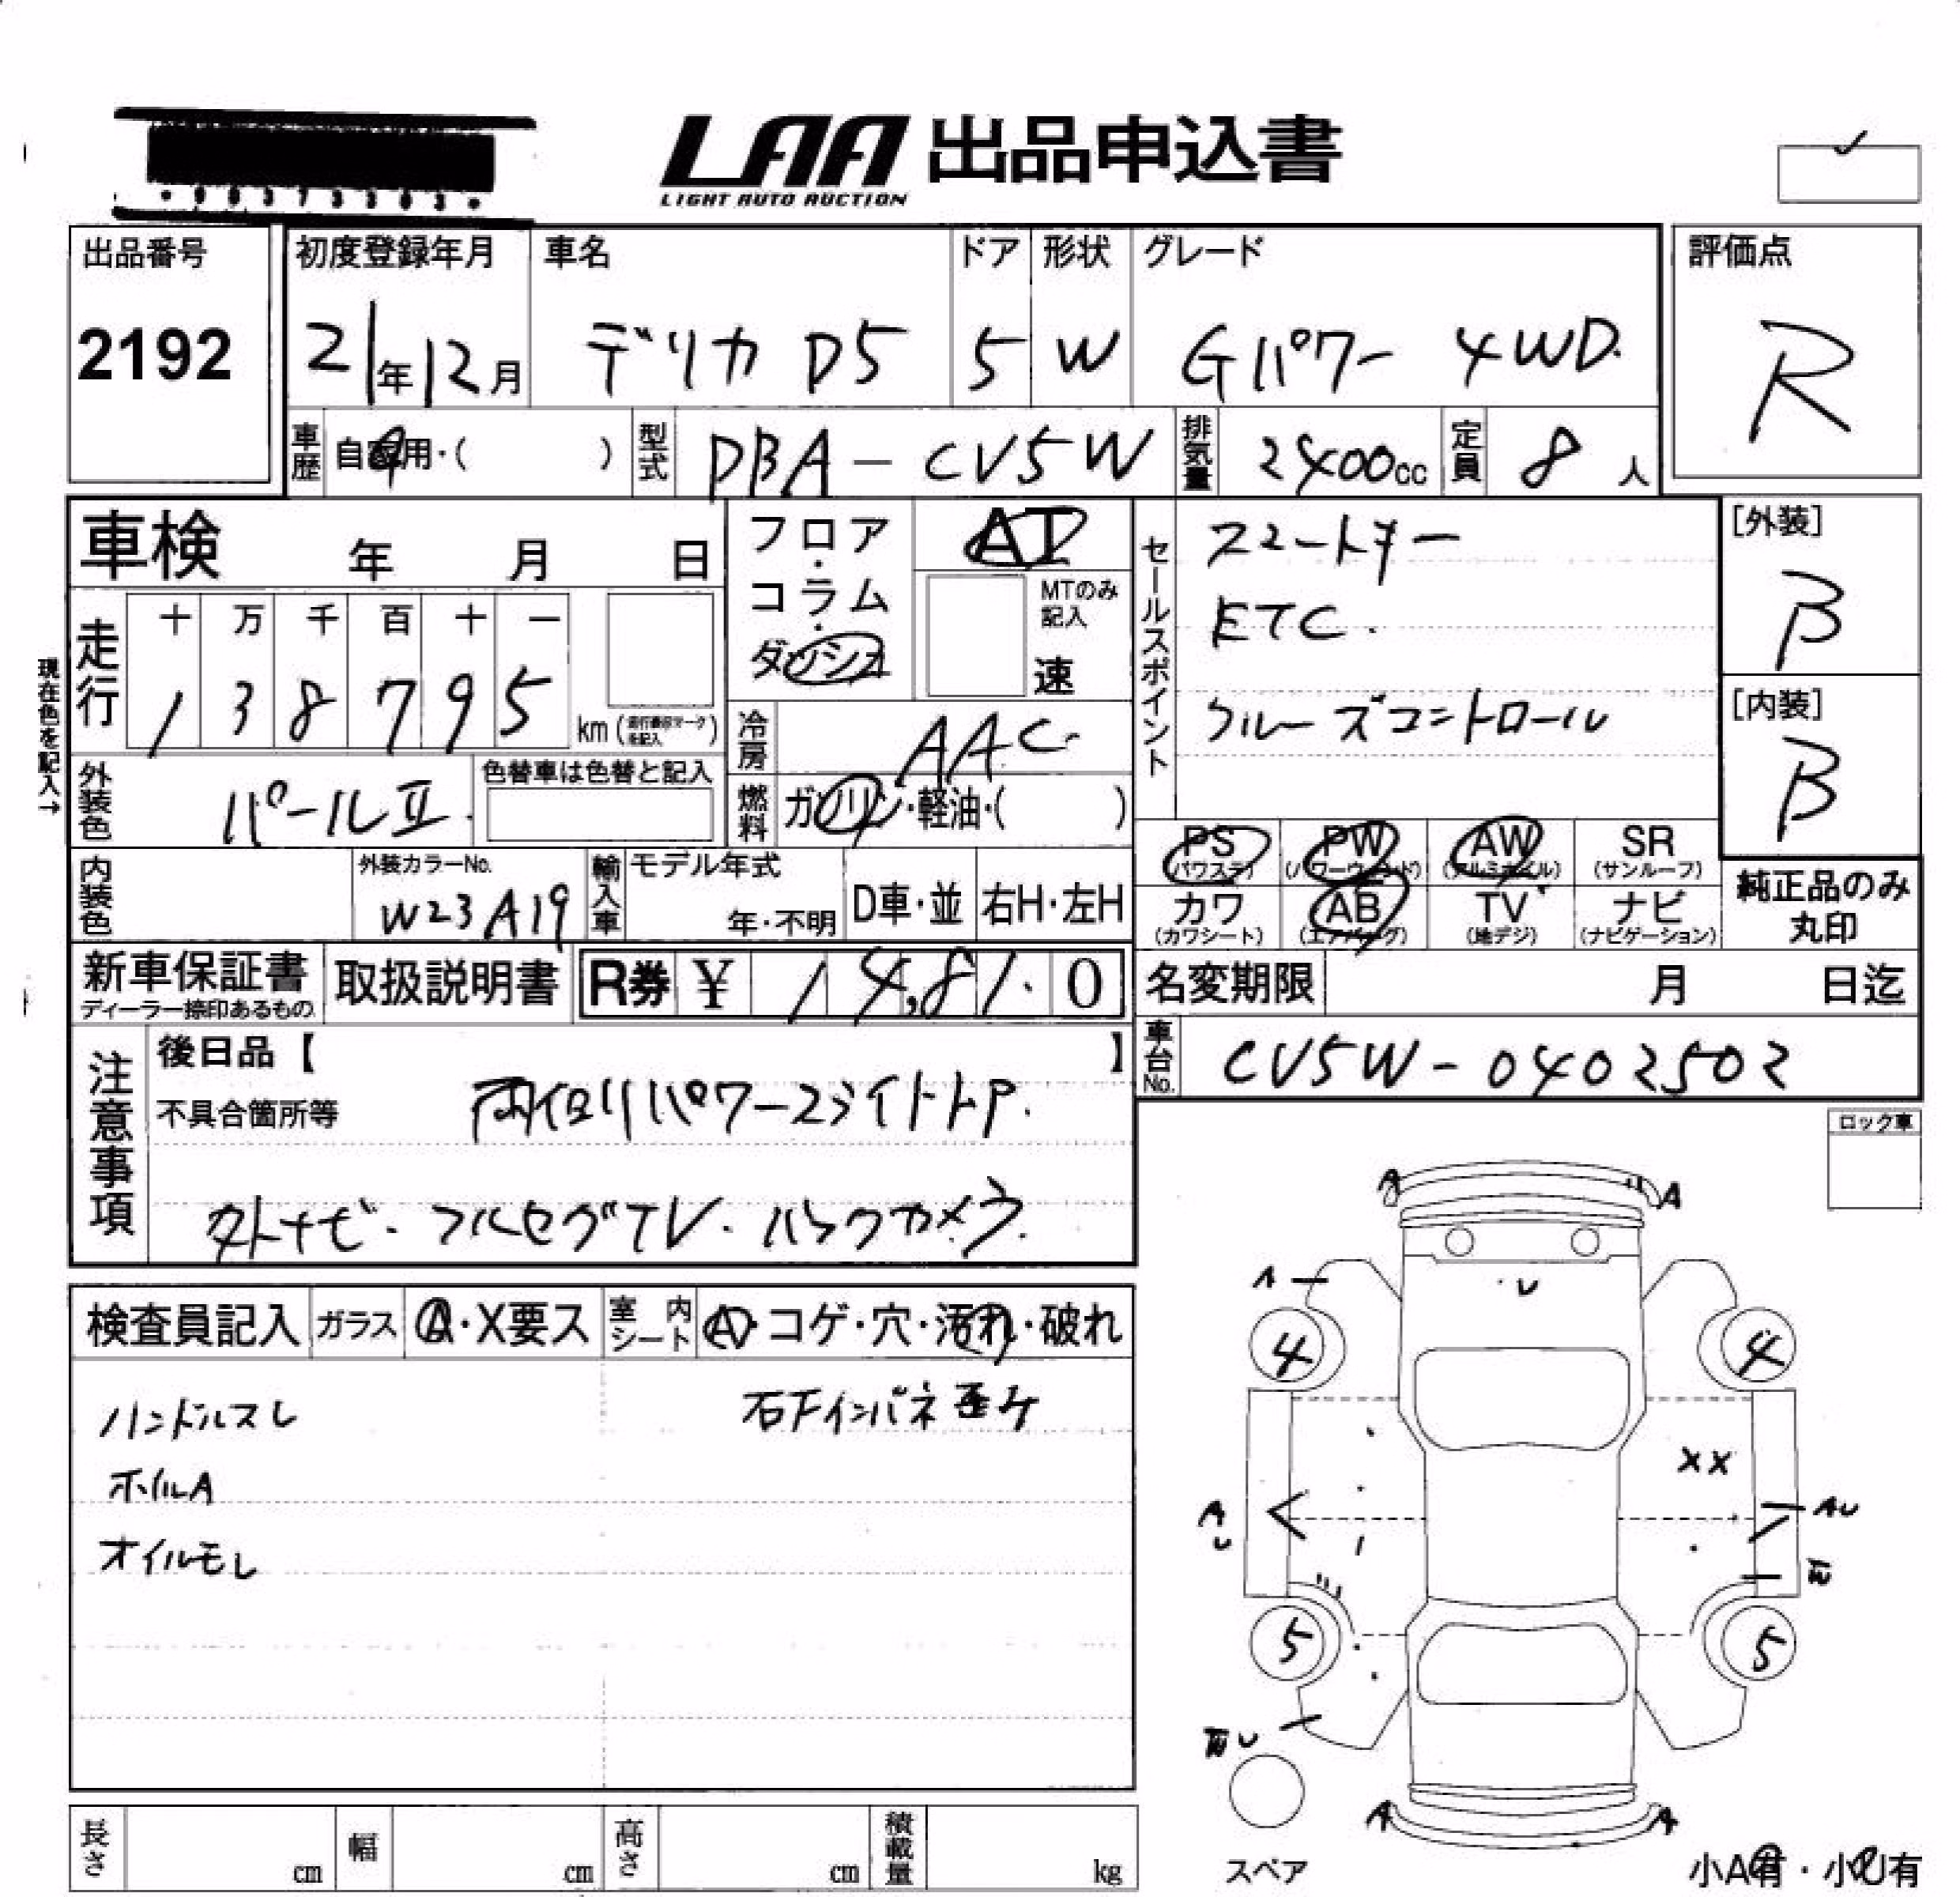 LAA 出品申込書
LIGHT AUTO AUCTION
出品番号 初度登録年月 車名 ドア 形状 グレード 評価点
2192 21年12月 デリカ D5 5 W Gパワー 4WD. R
車歴 自家用・( ) 型式 DBA-CV5W 排気量 2400cc 定員 8人
車検 年 月 日
フロア・コラム・ダッシュ
AT
MTのみ記入
速
セールスポイント
スマートキー
ETC.
クルーズコントロール
[外装]
B
[内装]
B
現在色を記入→
走行 十 万 千 百 十 一
1 3 8 7 9 5 km
冷房 AAC
外装色 パールII. 色替車は色替と記入
燃料 ガソリン・軽油・( )
PS (パワステ) PW (パワーウィンド) AW (アルミホイル) SR (サンルーフ)
カワ (カワシート) AB (エアバッグ) TV (地デジ) ナビ (ナビゲーション)
純正品のみ丸印
内装色 外装カラーNo. W23 A19 輸入車 モデル年式 年・不明 D車・並 右H・左H
新車保証書 ディーラー捺印あるもの 取扱説明書 R券 ¥ 14,81.0
名変期限 月 日迄
車台No. CV5W-0402502
注意事項
後日品【 】
不具合箇所等 両側パワースライドドア.
外ナビ・フルセグTV・バックカメラ.
ロック車
検査員記入 ガラス A・X要ス 室内シート A・コゲ・穴・汚れ・破れ
ハンドルスレ 右下インパネ歪ケ
ホイルA
オイルモレ
A A
A U
4 4
XX
A U AU
5 5
U
A A
スペア
小A有・小U有
長さ cm 幅 cm 高さ cm 積載量 kg